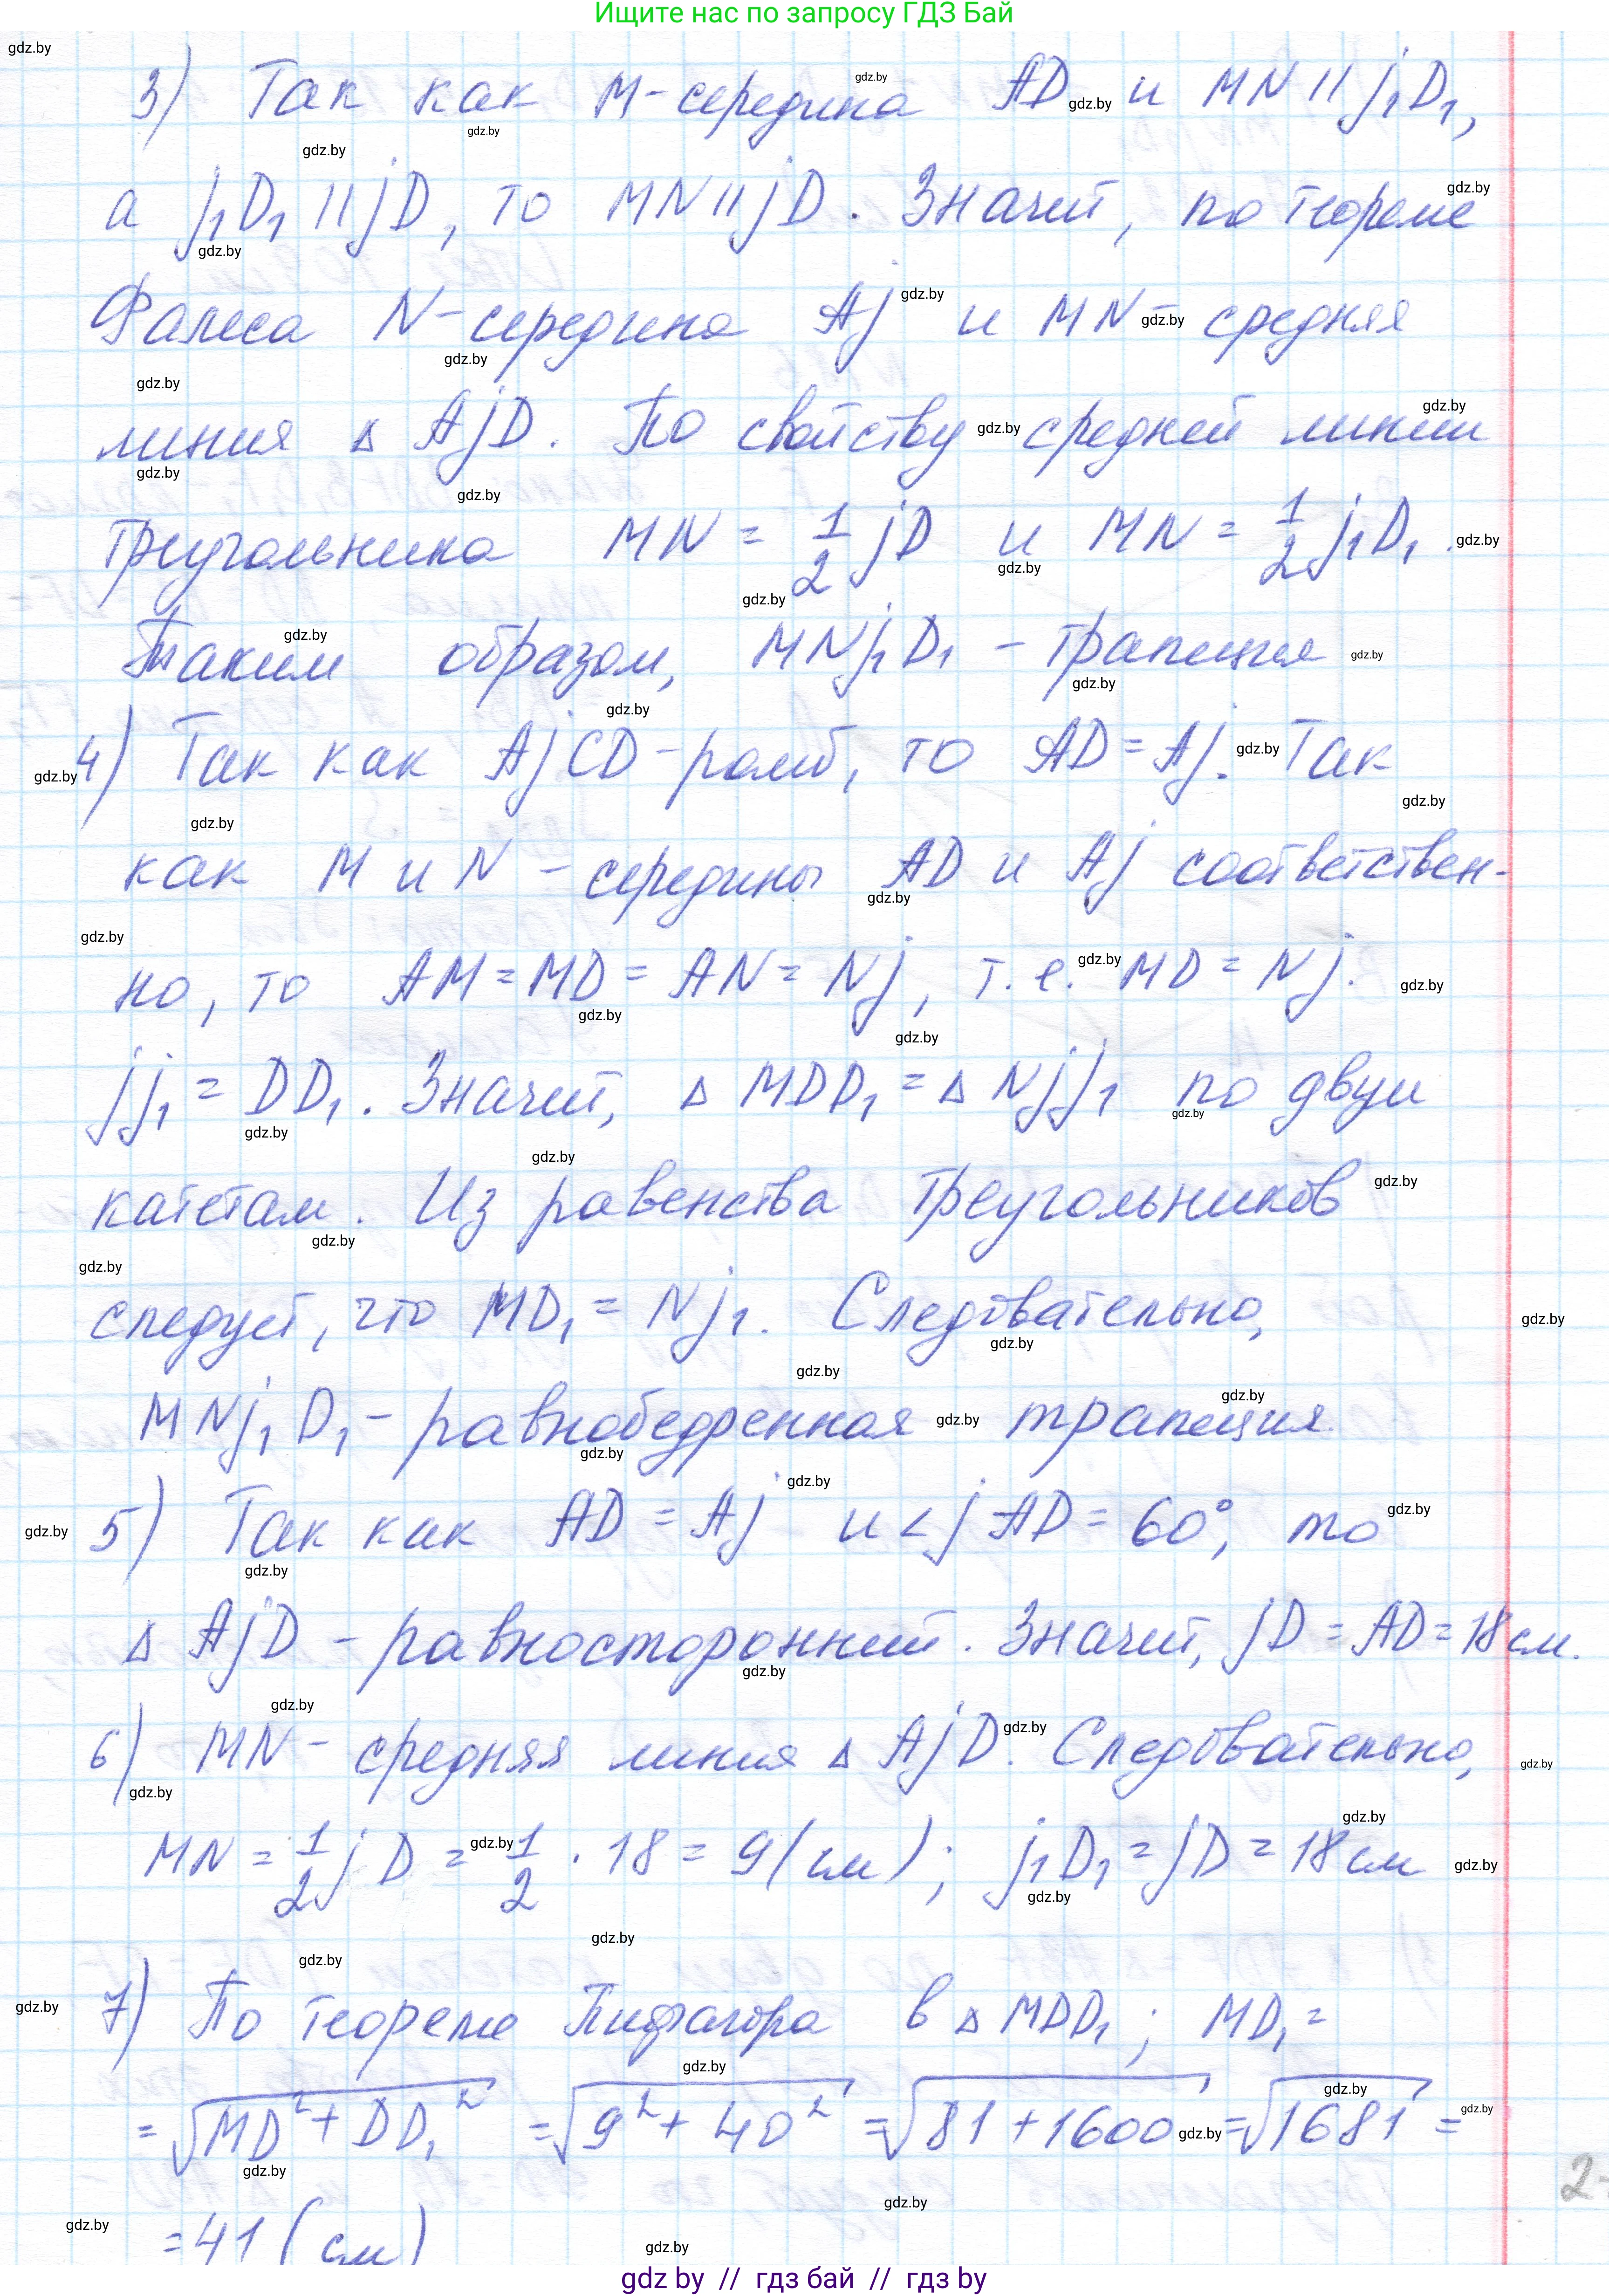 Ищите нас по запросу ГДЗ Бай
3) Так как M-середина AD и MN || j₁D₁,
а j₁D₁ || jD, то MN || jD. Значит, по теореме
Фалеса N-середина Aj и MN-средняя
линия Δ AjD. По свойству средней линии
треугольника MN = 1/2 jD и MN = 1/2 j₁D₁.
Таким образом, MNj₁D₁ - трапеция
4) Так как AjCD-ромб, то AD = Aj. Так
как M и N - середины AD и Aj соответствен-
но, то AM = MD = AN = Nj, т.е. MD = Nj.
jj₁ = DD₁. Значит, Δ MDD₁ = Δ Njj₁ по двум
катетам. Из равенства треугольников
следует, что MD₁ = Nj₁. Следовательно,
MNj₁D₁ - равнобедренная трапеция.
5) Так как AD = Aj и < jAD = 60°, то
Δ AjD - равносторонний. Значит, jD = AD = 18 см.
6) MN - средняя линия Δ AjD. Следовательно,
MN = 1/2 jD = 1/2 · 18 = 9 (см); j₁D₁ = jD = 18 см
7) По теореме Пифагора в Δ MDD₁; MD₁ =
= √(MD² + DD₁²) = √(9² + 40²) = √(81 + 1600) = √1681 =
= 41 (см)
gdz by // гдз бай // гдз by